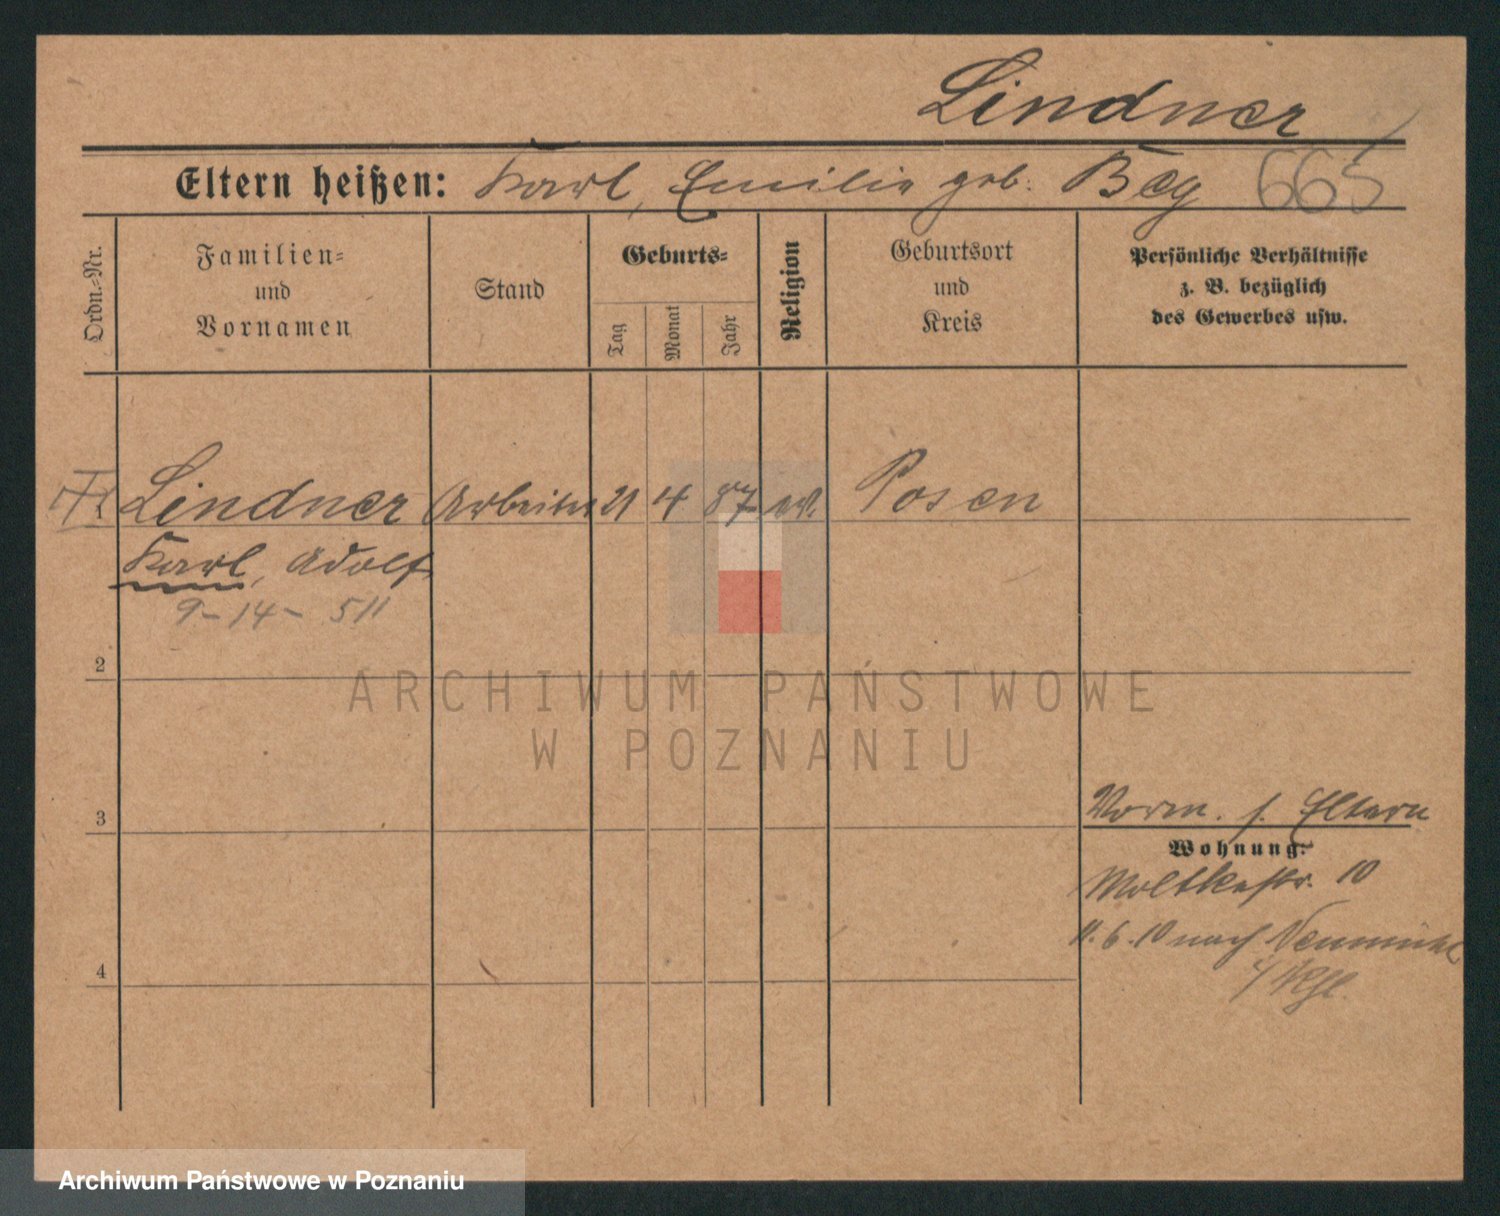 Lindner
Eltern heißen: Karl, Emilie geb. Beg 665
Ordn.-Nr.
Familien-
und
Vornamen
Stand
Geburts-
Tag
Monat
Jahr
Religion
Geburtsort
und
Kreis
Persönliche Verhältnisse
z. B. bezüglich
des Gewerbes usw.
Lindner Arbeiter 21 4 87 ev. Posen
Karl, Adolf
9-14- 511
2
ARCHIWUM PAŃSTWOWE
W POZNANIU
3
Vorm. s. Eltern
Wohnung:
Moltkestr. 10
11.6.10 nach
4
Archiwum Państwowe w Poznaniu